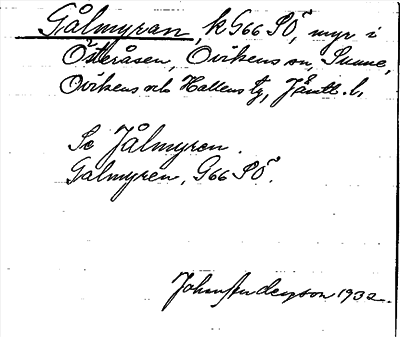 Gålmyran, k G66 SÖ, myr i
Österåsen, Ovikens sn, Sunne,
Ovikens och Hallens tg, Jämtl. l.
Se Jålmyren.
Galmyren, G66 SÖ.
John Anderzson 1932.